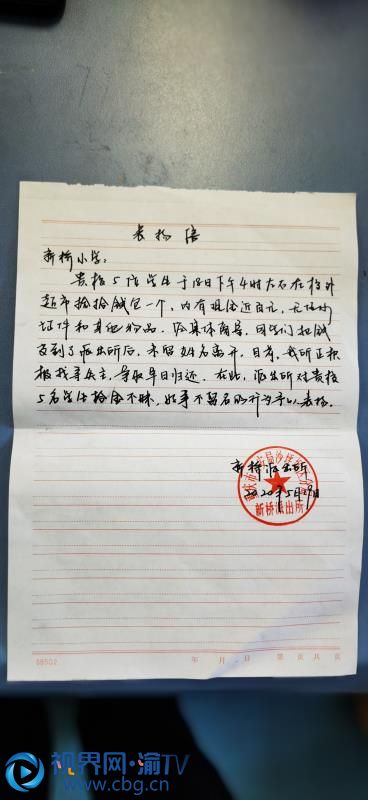 表扬信
新桥小学:
贵校5位学生于18日下午4时左右在校外
超市捡拾钱包一个,内有现金近百元,无任何
证件和其他物品。经集体商量,同学们把钱
送到了派出所后,未留姓名离开,目前,我所正积
极找寻失主,争取早日归还。在此,派出所对贵校
5名学生拾金不昧,好事不留名的行为予以表扬。
新桥派出所
2020年5月19日
新桥派出所
08502 年 月 日 第 页 共 页
视界网·渝TV
www.cbg.cn